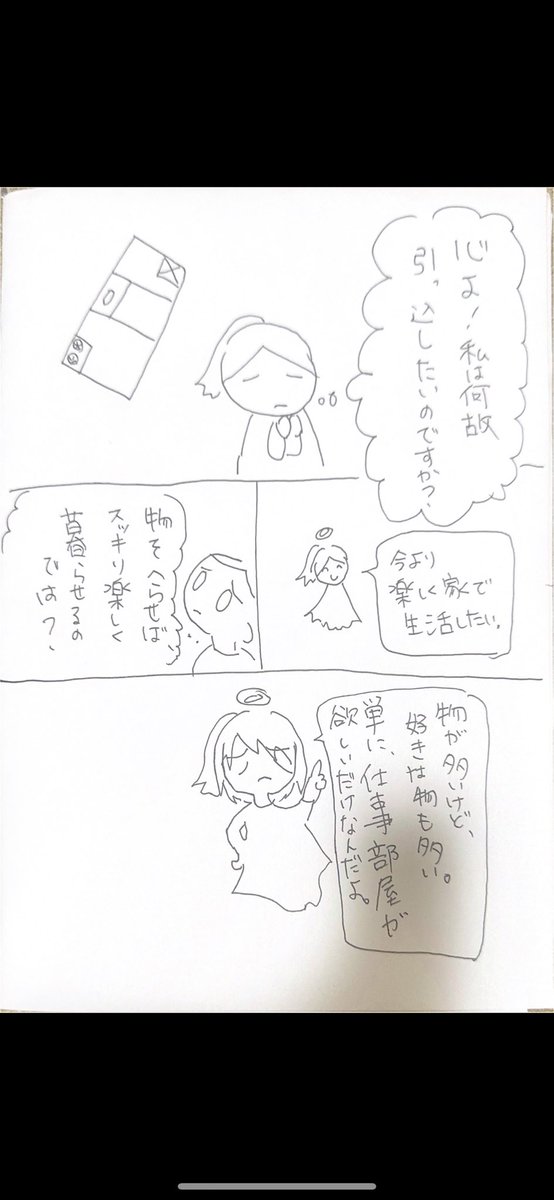 心よ！私は何故
引っ込したいのですか？
今より
楽しく家で
生活したい。
物をへらせば
スッキリ楽しく
暮らせるの
では？
物が多いけど、
好きな物も多い。
単に、仕事部屋が
欲しいだけなんだよ。